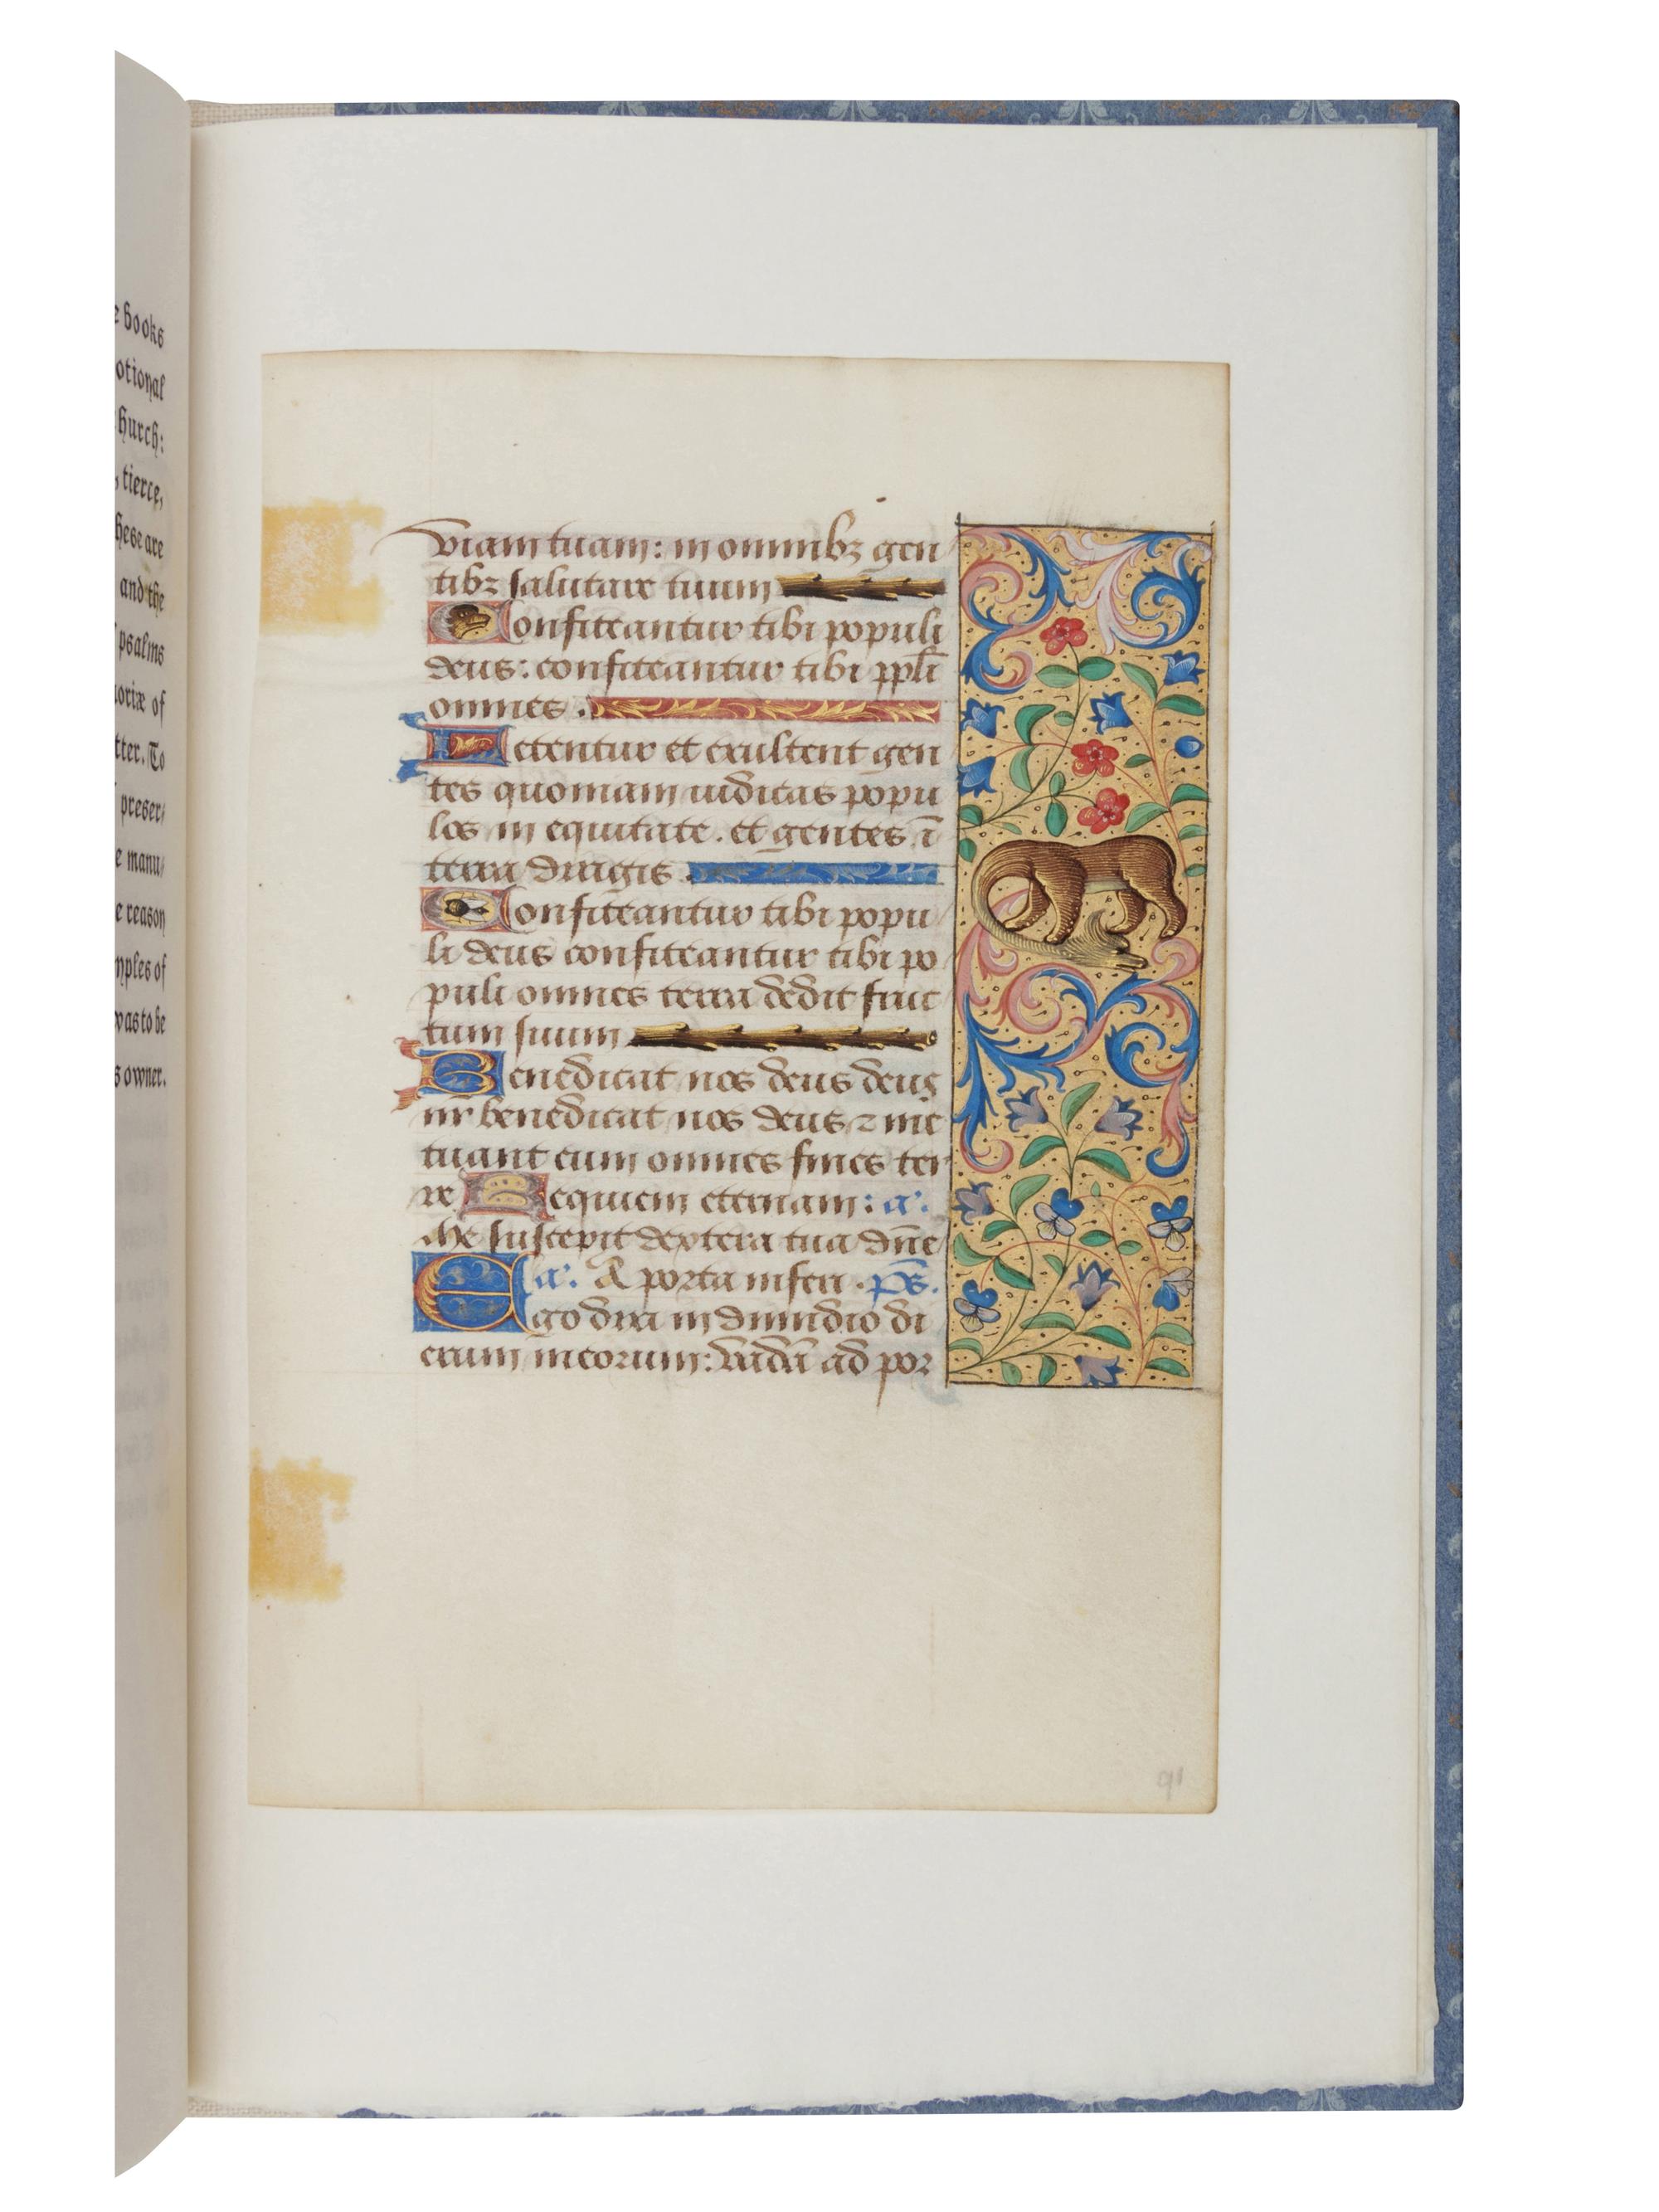 e books
otional
hurch:
, tierce,
hese are
and the
psalms
oriæ of
tter. To
preser/
e manu/
e reason
mples of
was to be
s owner.
viam tuam: in omnibꝫ gen
tibꝫ salutare tuum
Confiteantur tibi populi
deus: confiteantur tibi ppl̄i
omnes.
Letentur et exultent gen
tes quoniam iudicas popu
los in equitate. et gentes ī
terra dirigis.
Confiteantur tibi popu
li deus confiteantur tibi po
puli omnes terra dedit fruc
tum suum
Benedicat nos deus deus
nr̄ benedicat nos deus ⁊ me
tuant eum omnes fines ter
re Requiem eternam: a'.
Me suscepit dextera tua dn̄e
a'. A porta inferi. ps̄.
Ego dixi in dimidio di
erum meorum: vādā ad por
91